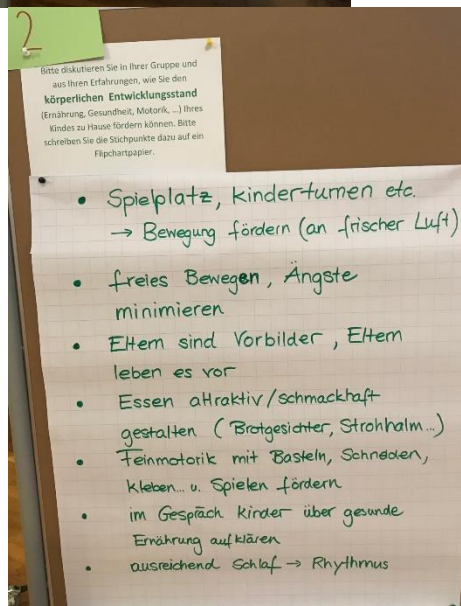 2
Bitte diskutieren Sie in Ihrer Gruppe und
aus Ihren Erfahrungen, wie Sie den
körperlichen Entwicklungsstand
(Ernährung, Gesundheit, Motorik, ...) Ihres
Kindes zu Hause fördern können. Bitte
schreiben Sie die Stichpunkte dazu auf ein
Flipchartpapier.
• Spielplatz, kinderturnen etc.
→ Bewegung fördern (an frischer Luft)
• freies Bewegen, Ängste
minimieren
• Eltern sind Vorbilder, Eltern
leben es vor
• Essen attraktiv/schmackhaft
gestalten (Brotgesichter, Strohhalm...)
• Feinmotorik mit Basteln, Schneiden,
kleben... u. Spielen fördern
• im Gespräch Kinder über gesunde
Ernährung aufklären
• ausreichend Schlaf → Rhythmus